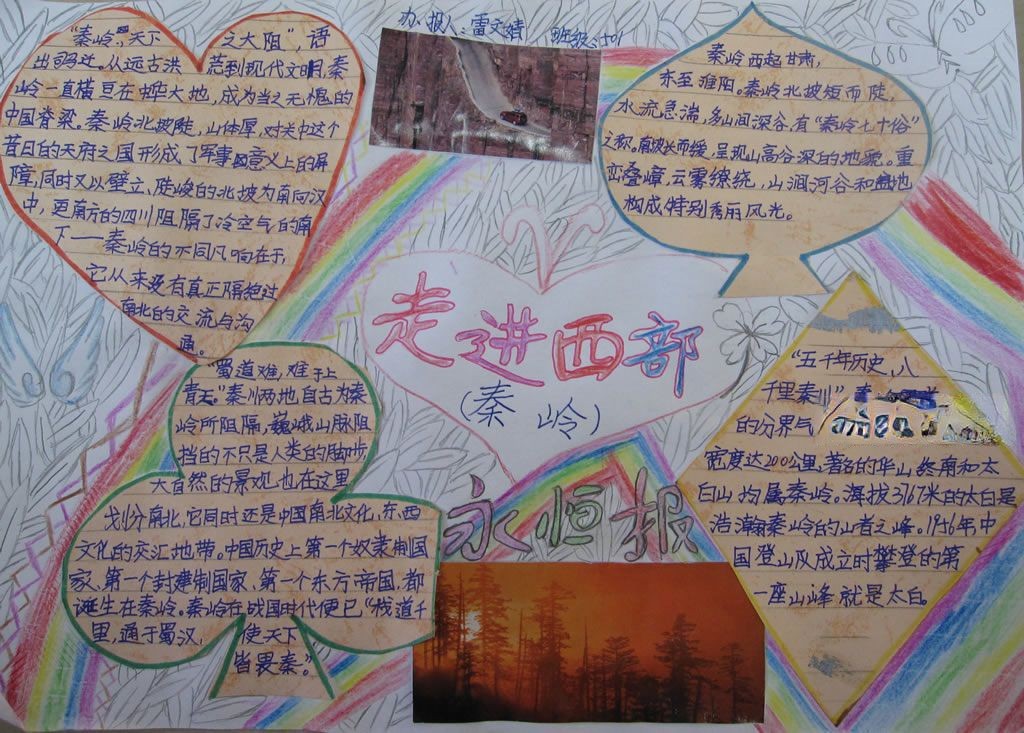 办报人:雷文婧 班级:501
“秦岭,天下之大阻”,语
出司马迁。从远古洪荒到现代文明,秦
岭一直横亘在中华大地,成为当之无愧的
中国脊梁。秦岭北坡陡,山体厚,对关中这个
昔日的天府之国形成了军事意义上的屏
障,同时又以壁立、陡峻的北坡为南向汉
中,更南方的四川阻隔了冷空气的南
下——秦岭的不同凡响在于,
它从来没有真正隔绝过
南北的交流与沟
通。
秦岭西起甘肃,
东至淮阳。秦岭北坡短而陡,
水流急湍,多山间深谷,有“秦岭七十俗”
之称。南坡长而缓,呈现山高谷深的地貌。重
峦叠嶂,云雾缭绕,山涧河谷和盆地
构成特别秀丽风光。
走进西部
(秦岭)
永恒报
“蜀道难,难于上
青天。”秦川两地,自古为秦
岭所阻隔,巍峨山脉阻
挡的不只是人类的脚步,
大自然的景观也在这里
划分南北,它同时还是中国南北文化,东西
文化的交汇地带。中国历史上第一个奴隶制国
家、第一个封建制国家、第一个东方帝国,都
诞生在秦岭。秦岭在战国时代便已“栈道千
里,通于蜀汉,使天下
皆畏秦。”
“五千年历史,八
千里秦川”
的分界气
宽度达200公里,著名的华山、终南和太
白山均属秦岭。海拔3767米的太白是
浩瀚秦岭的山者之峰。1956年中
国登山队成立时攀登的第
一座山峰就是太白。